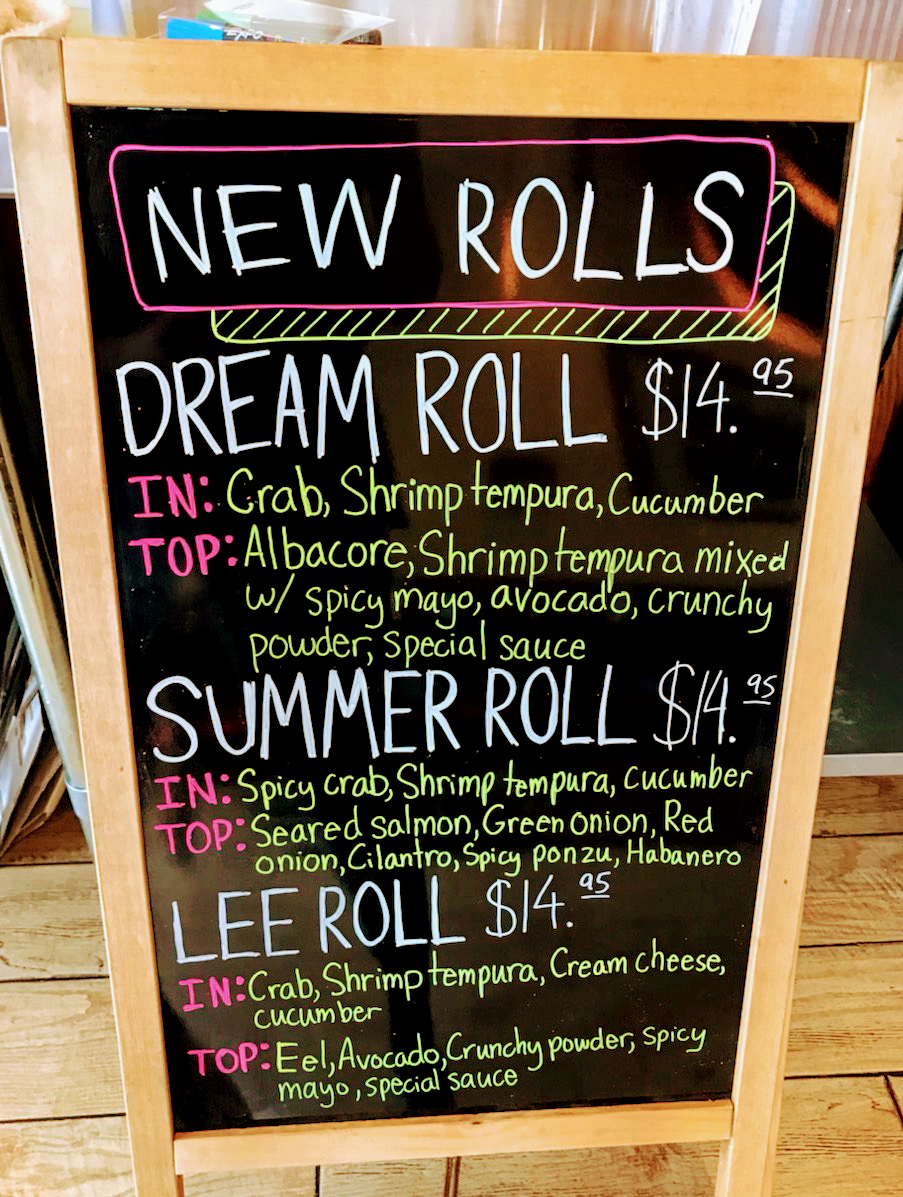 EXPO
NEW ROLLS
DREAM ROLL $14.95
IN: Crab, Shrimp tempura, Cucumber
TOP: Albacore, Shrimp tempura mixed
w/ spicy mayo, avocado, crunchy
powder, special sauce
SUMMER ROLL $14.95
IN: Spicy crab, Shrimp tempura, cucumber
TOP: Seared salmon, Green onion, Red
onion, Cilantro, Spicy ponzu, Habanero
LEE ROLL $14.95
IN: Crab, Shrimp tempura, Cream cheese,
cucumber
TOP: Eel, Avocado, Crunchy powder, spicy
mayo, special sauce